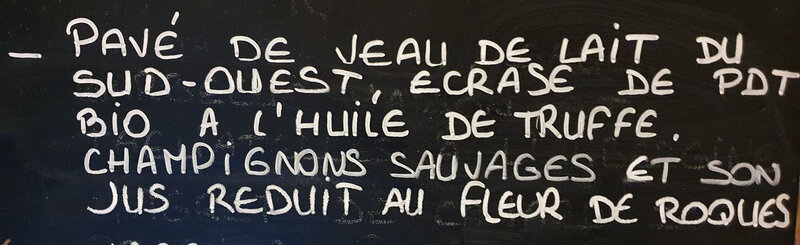 - PAVÉ DE VEAU DE LAIT DU
SUD-OUEST, ECRASE DE PDT
BIO A L'HUILE DE TRUFFE.
CHAMPIGNONS SAUVAGES ET SON
JUS REDUIT AU FLEUR DE ROQUES